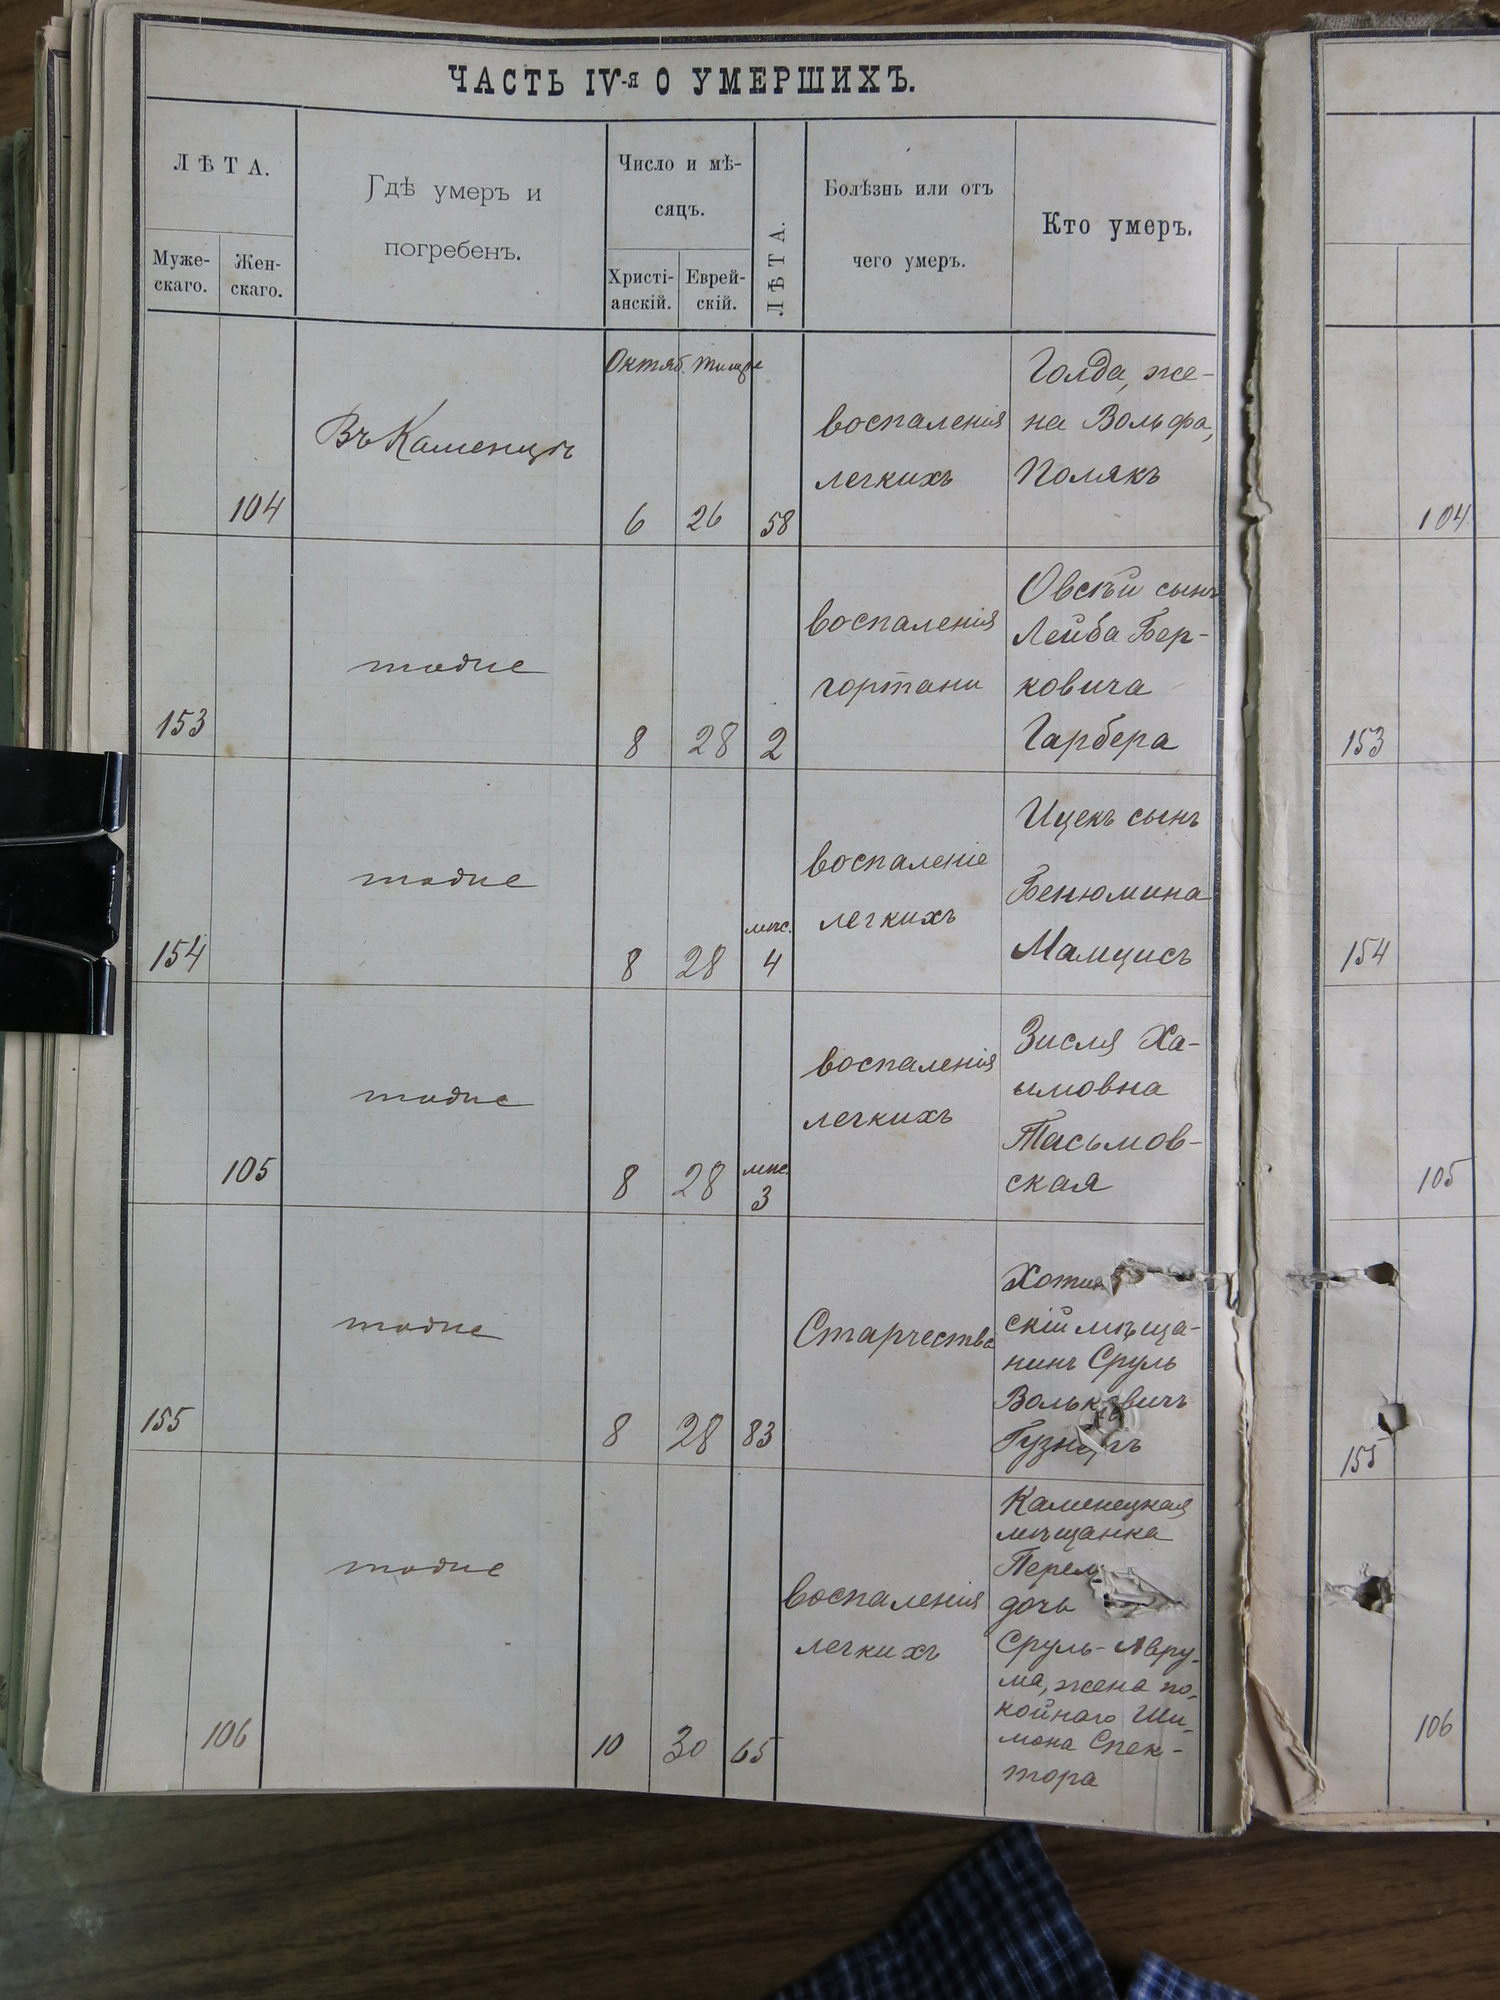 ЧАСТЬ IV-я О УМЕРШИХЪ.
ЛѢТА.
Муже-
скаго.
Жен-
скаго.
Гдѣ умеръ и
погребенъ.
Число и мѣ-
сяцъ.
Христі-
анскій.
Еврей-
скій.
ЛѢТА.
Болѣзнь или отъ
чего умеръ.
Кто умеръ.
104
Въ Каменцѣ
Октяб. Тишре
6 26 58
воспаленія
легкихъ
Голда, же-
на Вольфа,
Полякъ
104
153
тодие
8 28 2
воспаленія
гортани
Овсѣй сынъ
Лейба Бер-
ковича
Гарбера
153
154
тодие
8 28
мѣс.
4
воспаленіе
легкихъ
Ицекъ сынъ
Бенюмина
Мамцисъ
154
105
тодие
8 28
мѣс.
3
воспаленія
легкихъ
Зисля Ха-
имовна
Тасьмов-
ская
105
155
тодие
8 28 83
Старчества
Хотин
скій мѣща-
нинъ Сруль
Вольковичъ
155
106
тодие
10 30 65
воспаленія
легкихъ
Каменецкая
мѣщанка
дочь
Сруль-Авру-
ма, жена по-
койнаго Ши-
мона Спек-
тора
106